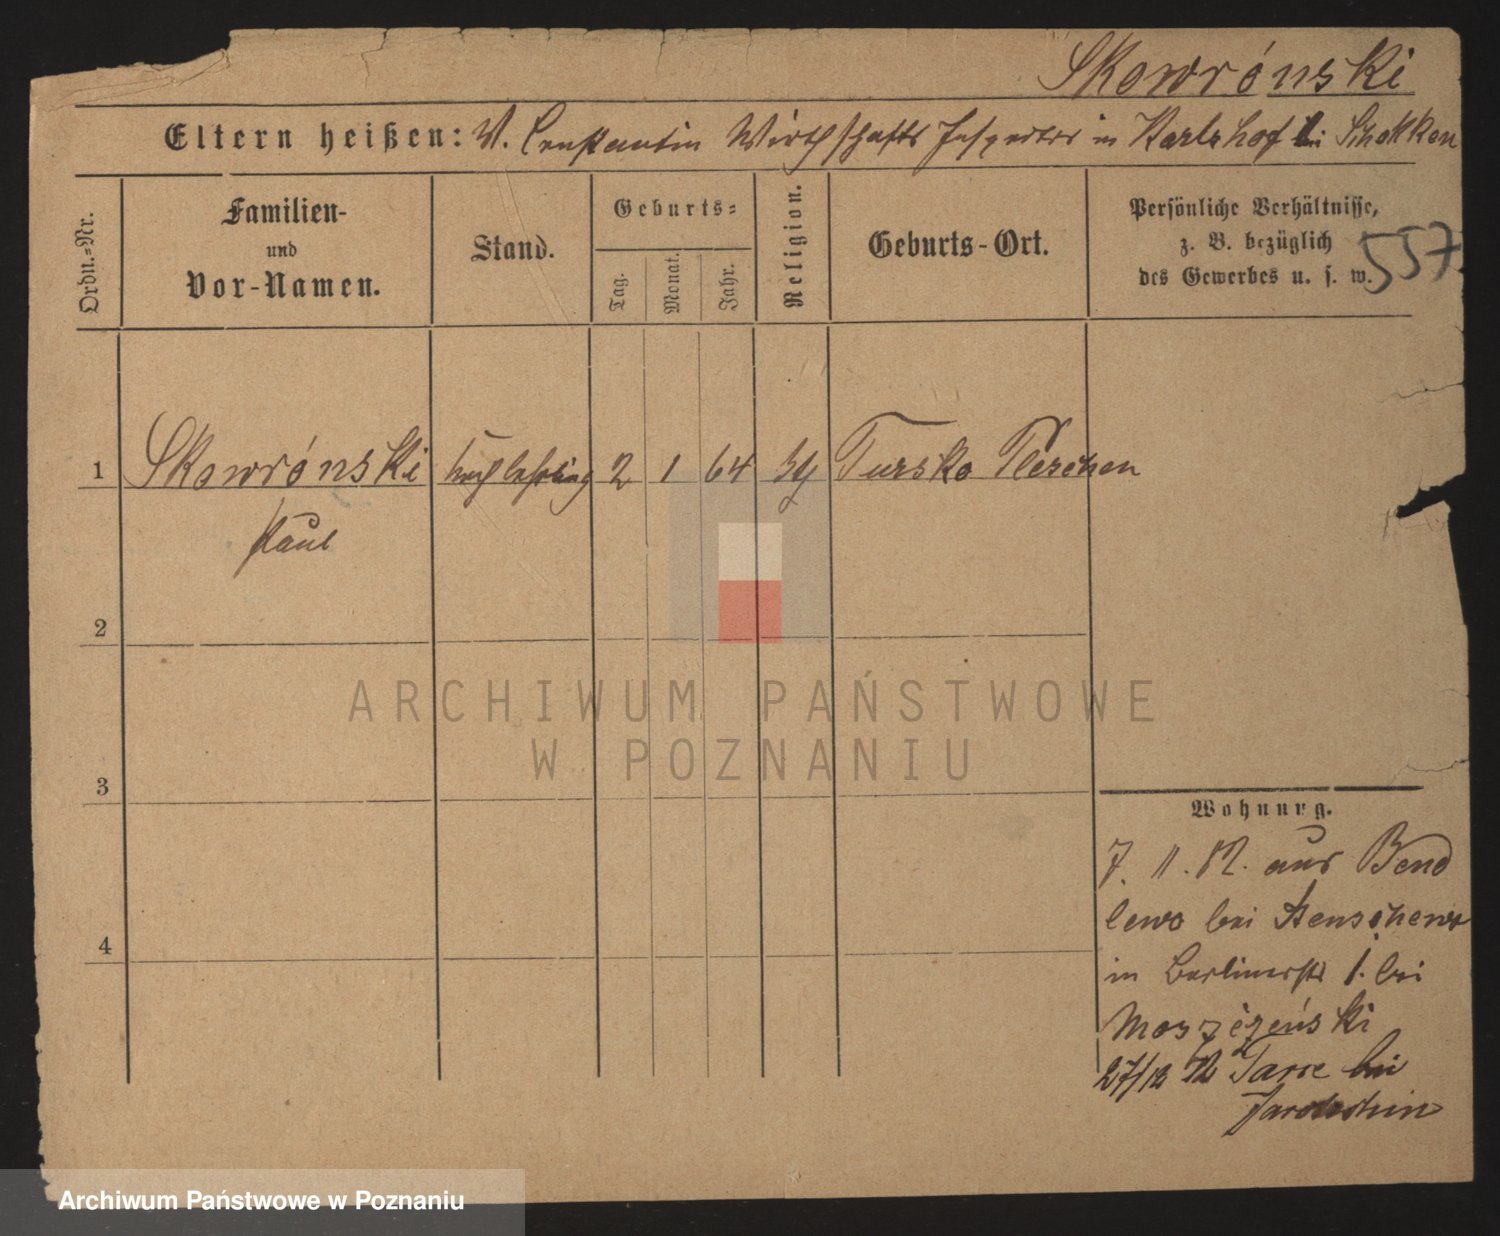 Skowróński
Eltern heißen: V. Constantin Wirthschafts Inspector in Karlshof bei Schokken
Ordn.-Nr.
Familien-
und
Vor-Namen.
Stand.
Geburts-
Tag.
Monat.
Jahr.
Religion.
Geburts-Ort.
Persönliche Verhältnisse,
z. B. bezüglich
des Gewerbes u. s. w.
557
1 Skowróński 2 1 64 Tursko Pleschen
Paul
2
3
4
Wohnung.
7. 11. 82. aus Bend
lewo bei Stenschewo
in Berlinerstr 1. bei
Moszczeński
27/12 82 Tarce bei
Jarotschin
ARCHIWUM PAŃSTWOWE
W POZNANIU
Archiwum Państwowe w Poznaniu